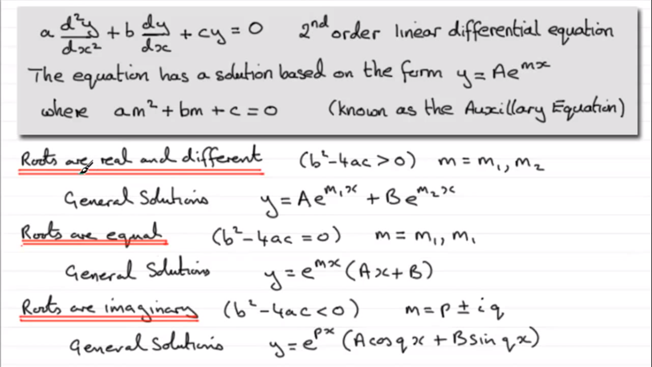 a d²y/dx² + b dy/dx + cy = 0 2nd order linear differential equation
The equation has a solution based on the form y = Ae^mx
where am² + bm + c = 0 (known as the Auxillary Equation)
Roots are real and different (b²-4ac > 0) m = m₁, m₂
General Solutions y = Ae^m₁x + Be^m₂x
Roots are equal (b²-4ac = 0) m = m₁, m₁
General Solutions y = e^mx (Ax + B)
Roots are imaginary (b²-4ac < 0) m = p ± iq
General Solutions y = e^px (A cos qx + B sin qx)